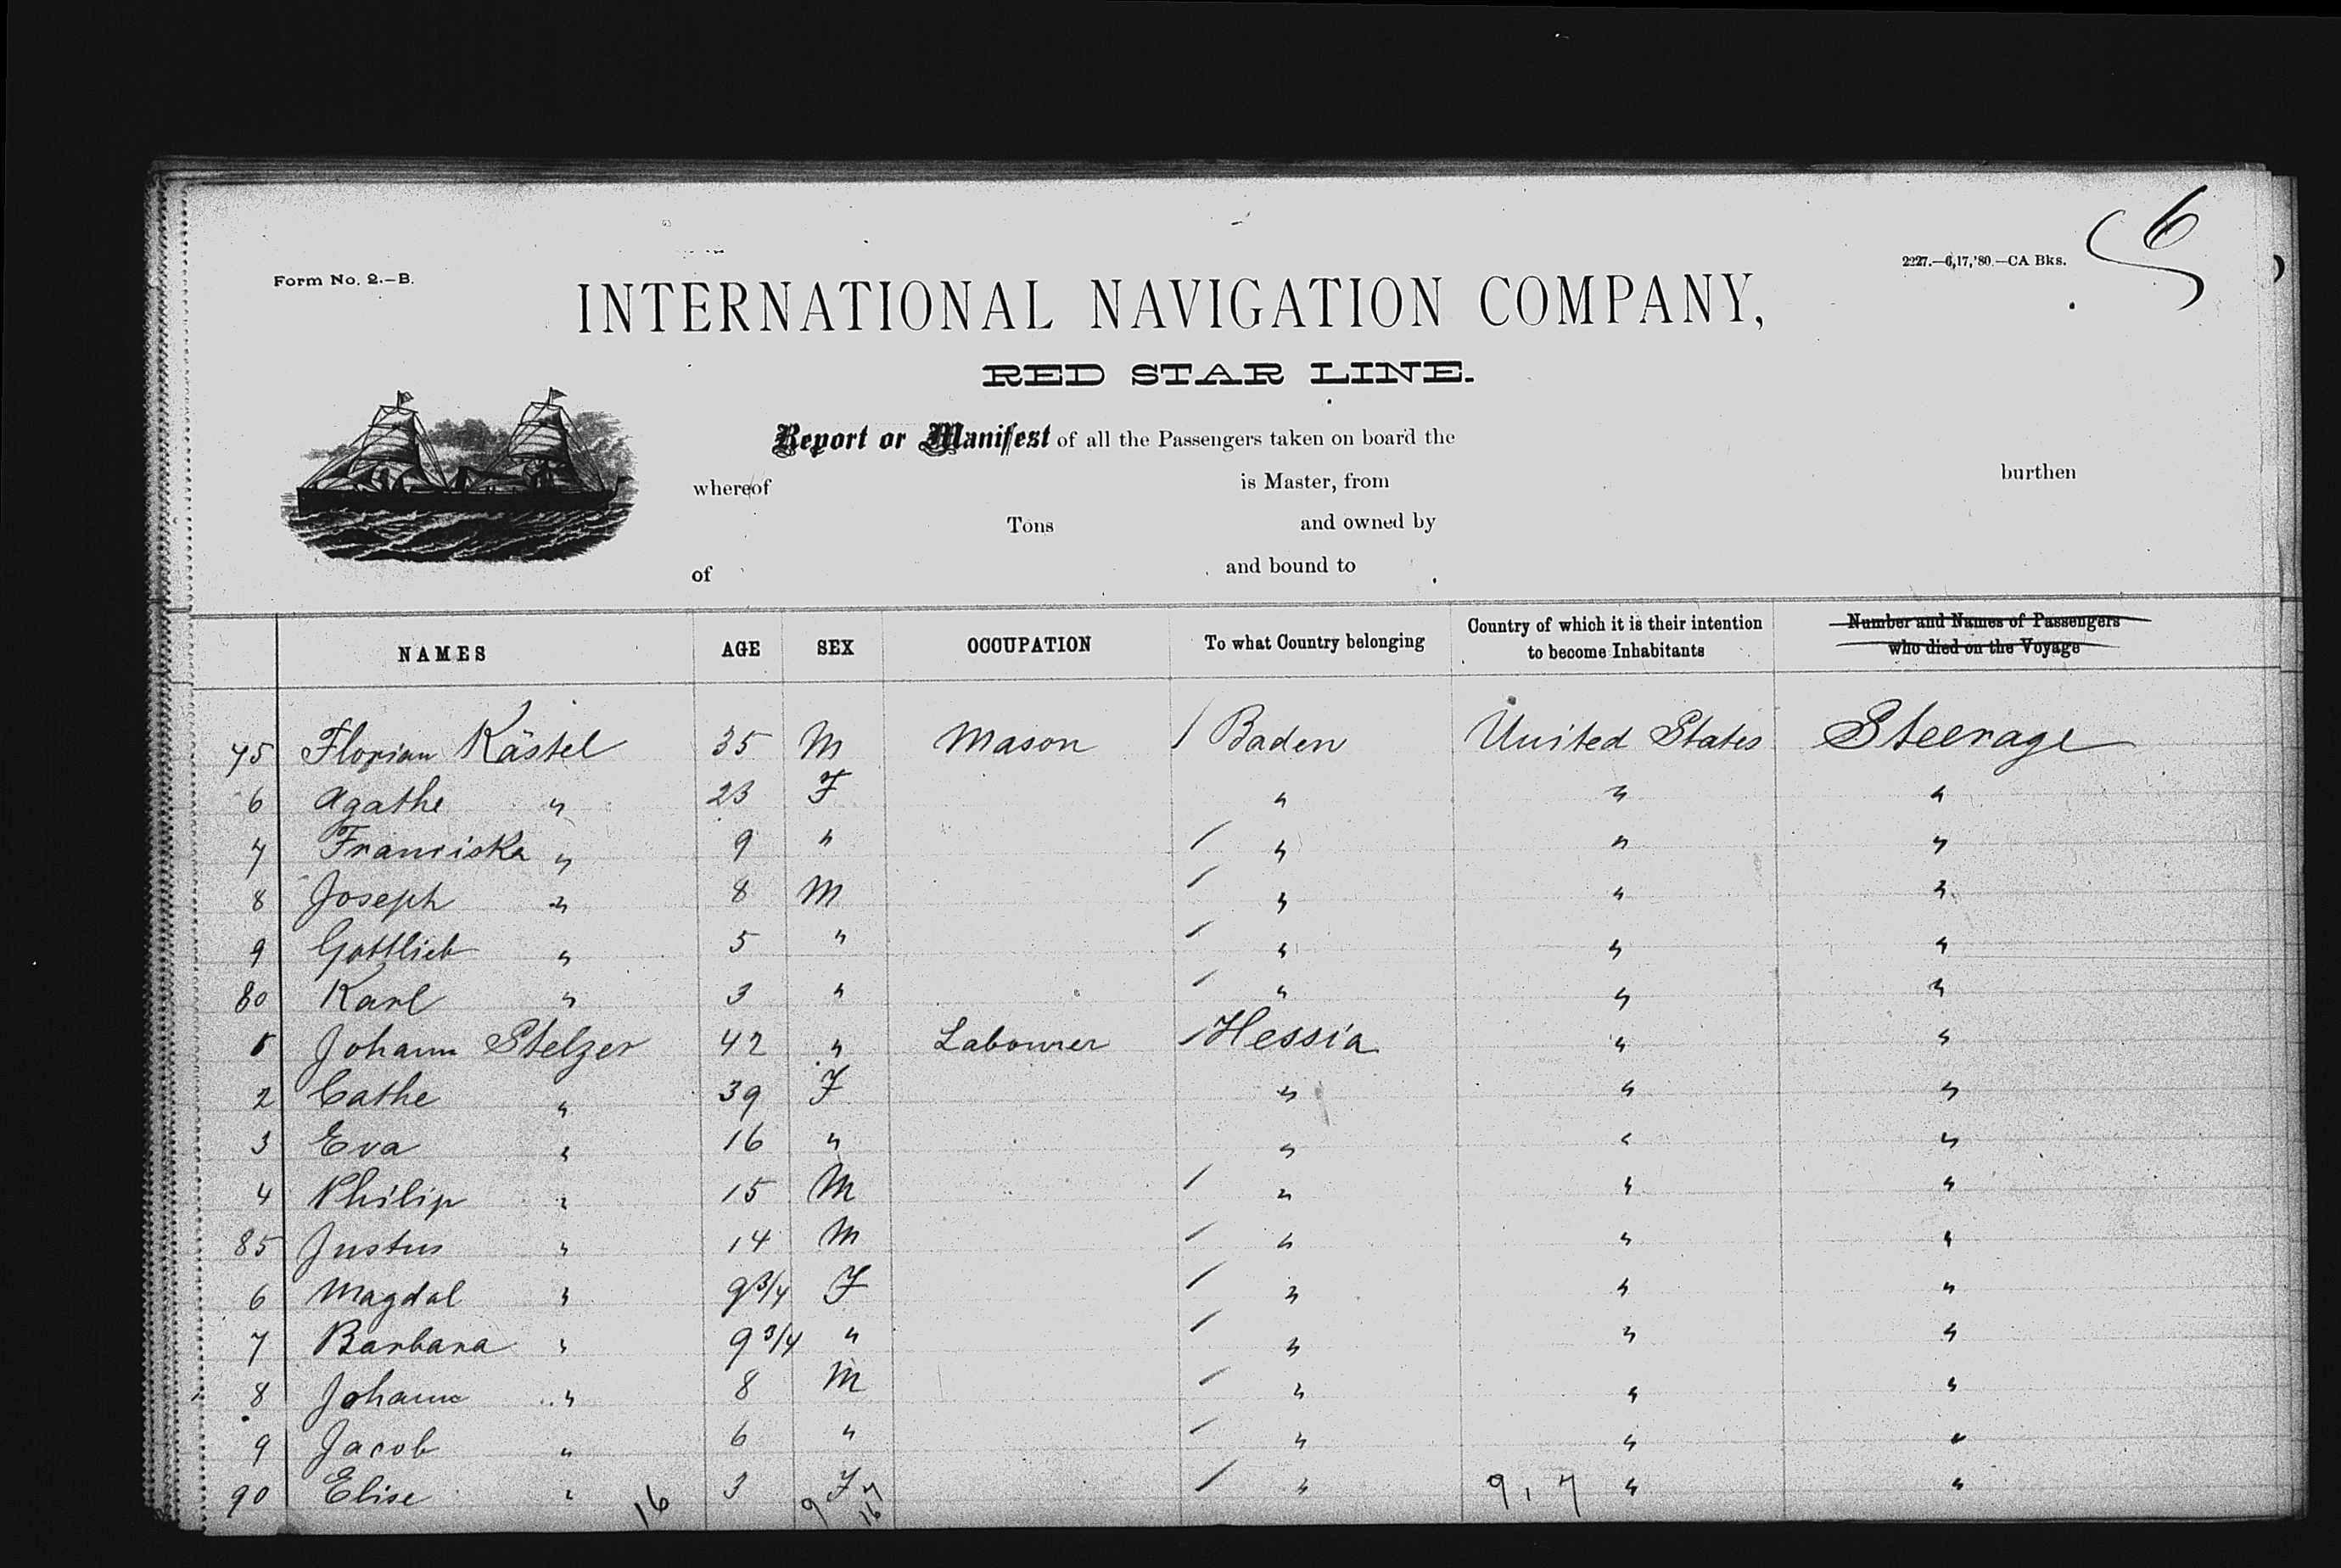 6
Form No. 2.—B.
2227.—6,17,'80.—CA Bks.
INTERNATIONAL NAVIGATION COMPANY,
RED STAR LINE.
Report or Manifest of all the Passengers taken on board the
whereof is Master, from burthen
Tons and owned by
of and bound to
NAMES AGE SEX OCCUPATION To what Country belonging Country of which it is their intention to become Inhabitants Number and Names of Passengers who died on the Voyage
75 Florian Kästel 35 M Mason / Baden United States Steerage
6 Agathe " 23 F " " "
7 Franciska " 9 " / " " "
8 Joseph " 8 M / " " "
9 Gottlieb " 5 " / " " "
80 Karl " 3 " / " " "
Johann Stelzer 42 " Labourer / Hessia " "
2 Cathe " 39 F " " "
3 Eva " 16 " " " "
4 Philip " 15 M / " " "
85 Justus " 14 M / " " "
6 Magdal " 9 3/4 F / " " "
7 Barbara " 9 3/4 " / " " "
8 Johann " 8 M / " " "
9 Jacob " 6 " / " " "
90 Elise " 3 F / " " "
16 9 7 16 9, 7